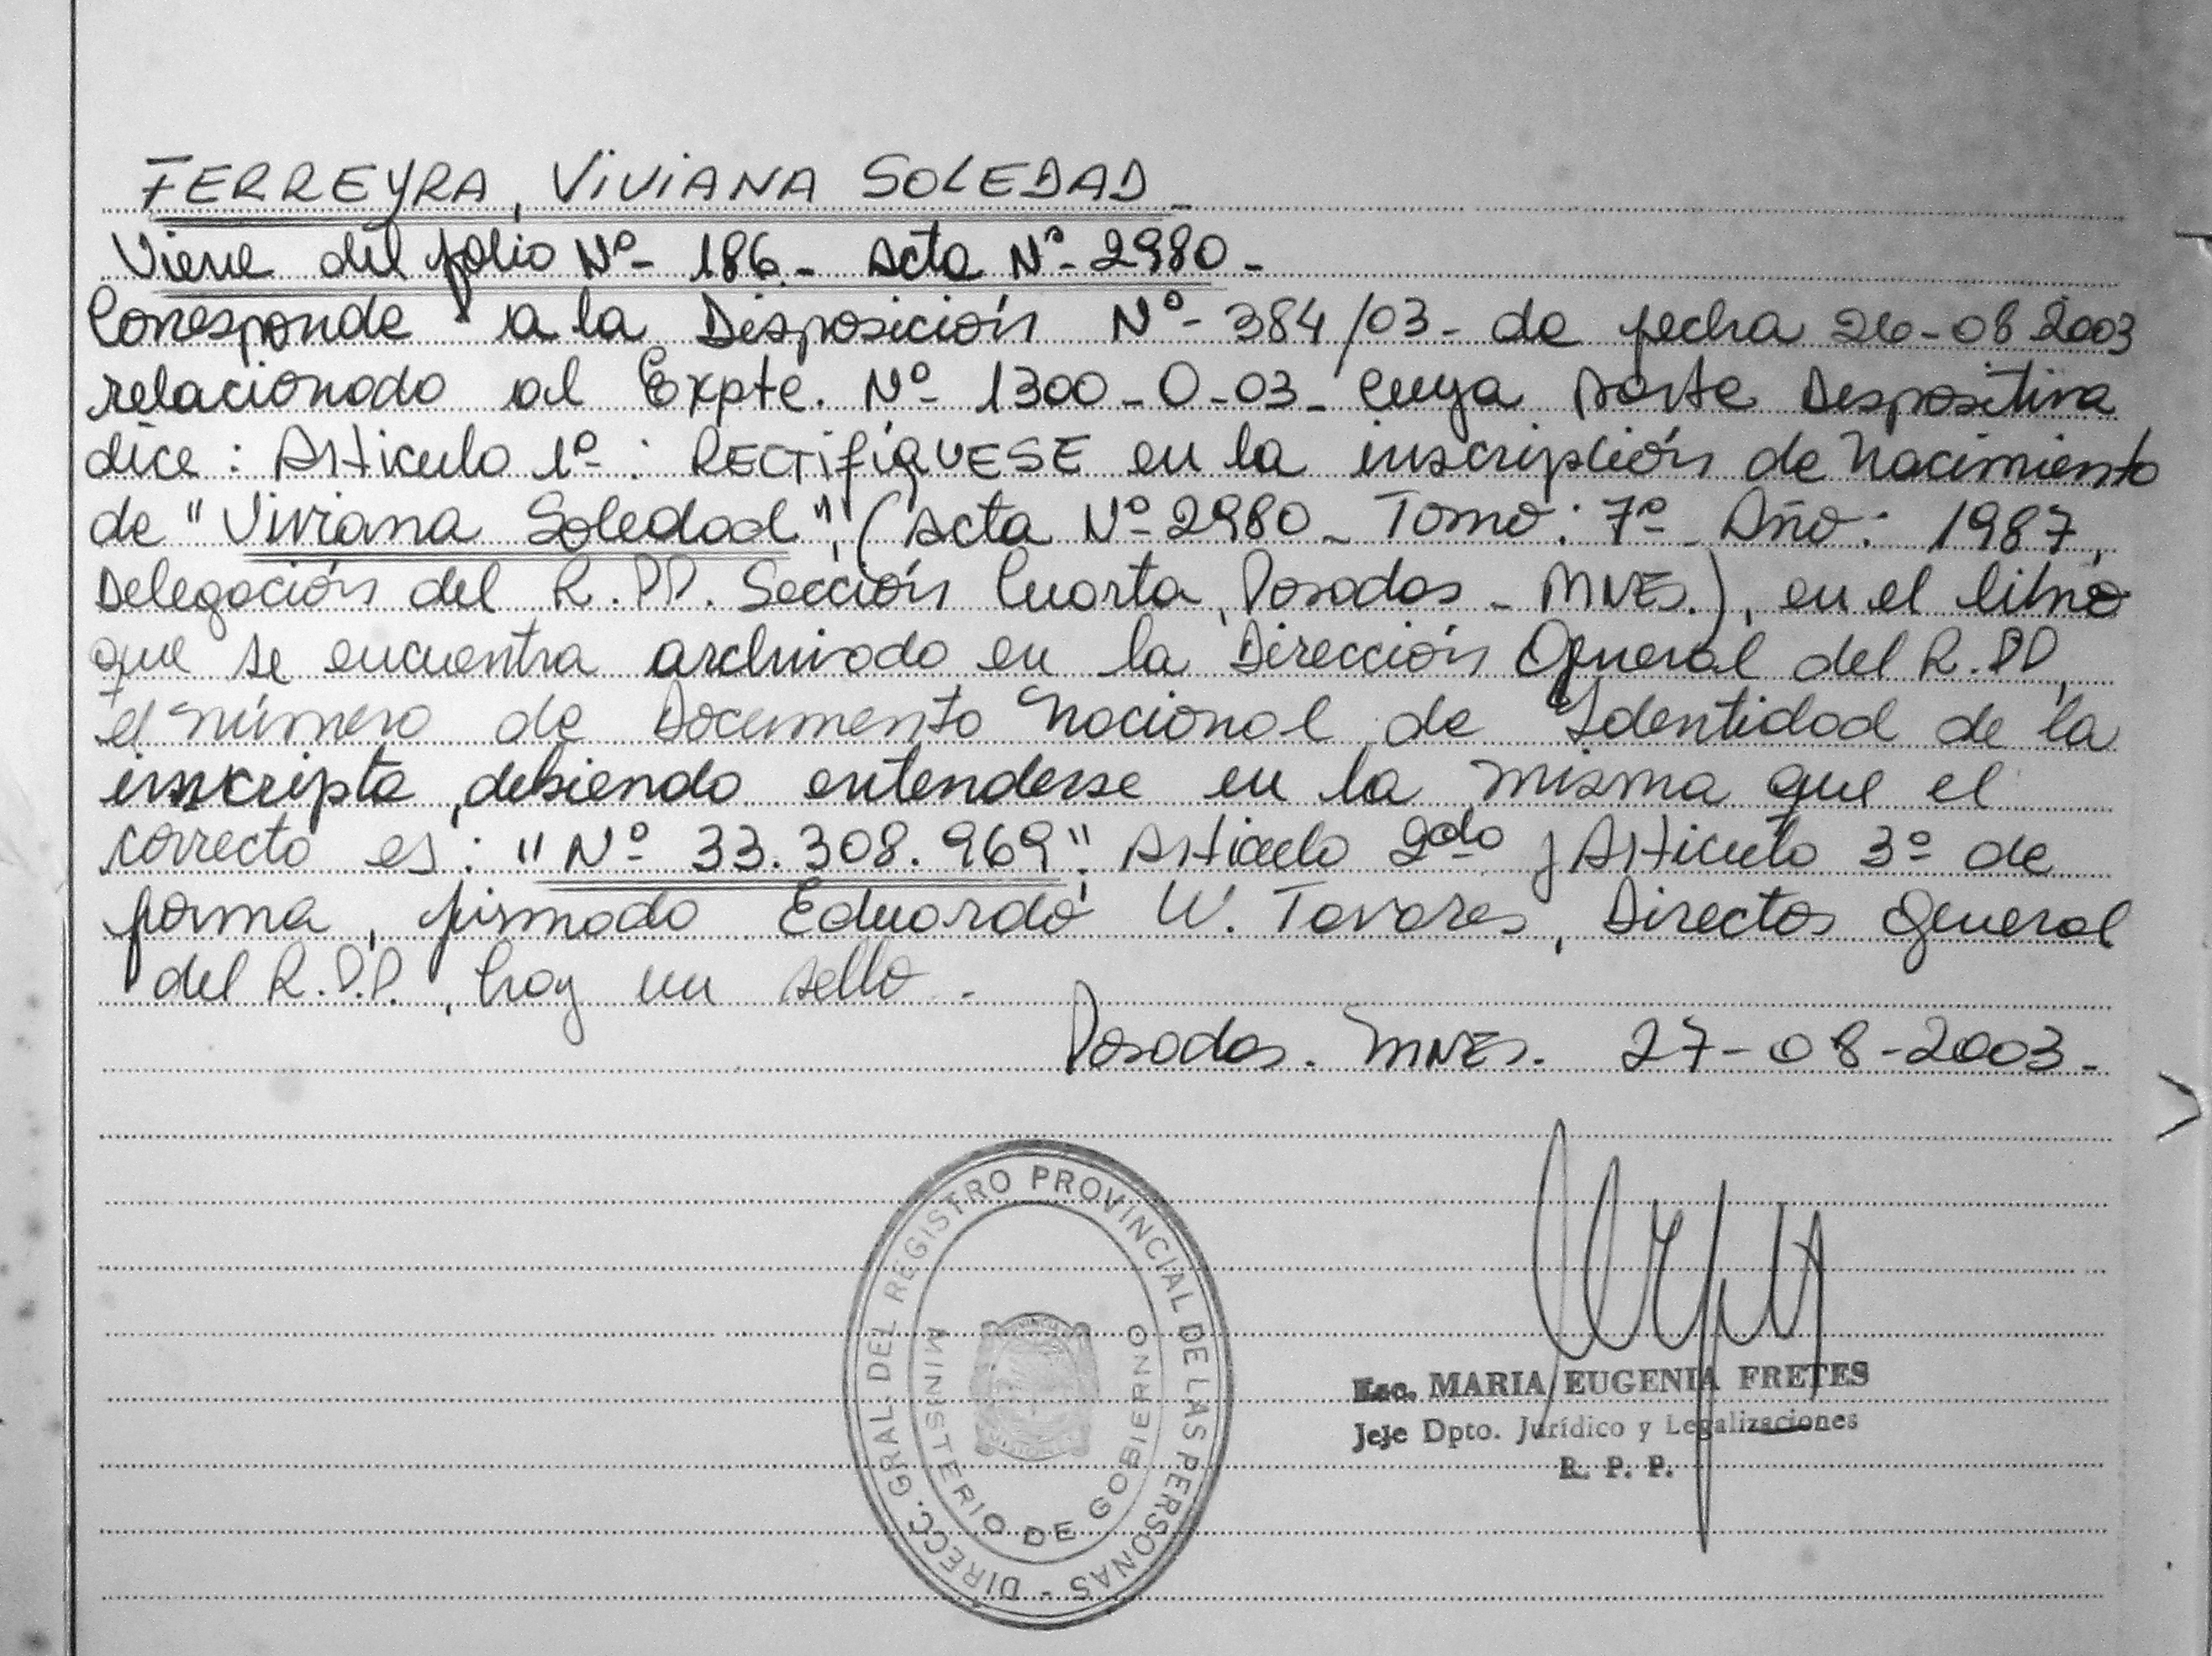 FERREYRA, VIVIANA SOLEDAD_
Viene del folio Nº- 186_ Acta Nº- 2980_
Corresponde a la Disposición Nº- 384/03- de fecha 26-08 2003
relacionado al Expte. Nº- 1300_O-03_ cuya parte Dispositiva
dice: Artículo 1º-: RECTIFÍQUESE en la inscripción de nacimiento
de "Viviana Soledad", (Acta Nº- 2980_ Tomo: 7º- Año: 1987,
Delegación del R.P.P. Sección Cuarta, Posadas - MNES.), en el libro
que se encuentra archivado en la Dirección General del R.PP,
el número de Documento Nacional de Identidad de la
inscripta, debiendo entenderse en la misma que el
correcto es: "Nº- 33.308.969". Artículo 2do y Artículo 3º- de
forma, firmado Eduardo W. Tavares, Director General
del R.P.P., hay un sello_
Posadas. MNES. 27-08-2003_
DIRECC. GRAL. DEL REGISTRO PROVINCIAL DE LAS PERSONAS -
MINISTERIO DE GOBIERNO
Esc. MARIA EUGENIA FRETES
Jefe Dpto. Jurídico y Legalizaciones
R. P. P.